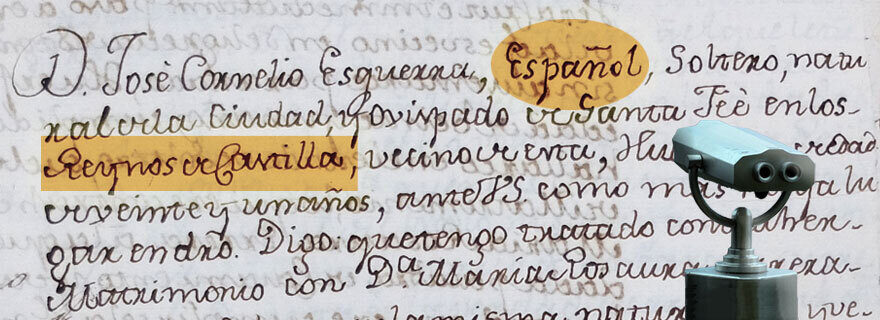 D. Josè Cornelio Esguerra, Español, Soltero, natu
ral de la Ciudad, y Ovispado de Santa Feè en los
Reynos de Castilla, vecino de esta, edad
de veinte y un años, ante VS. como mas haya lu
gar en dro. Digo: que tengo tratado contraher
Matrimonio con Da. Maria Rosaura
la misma